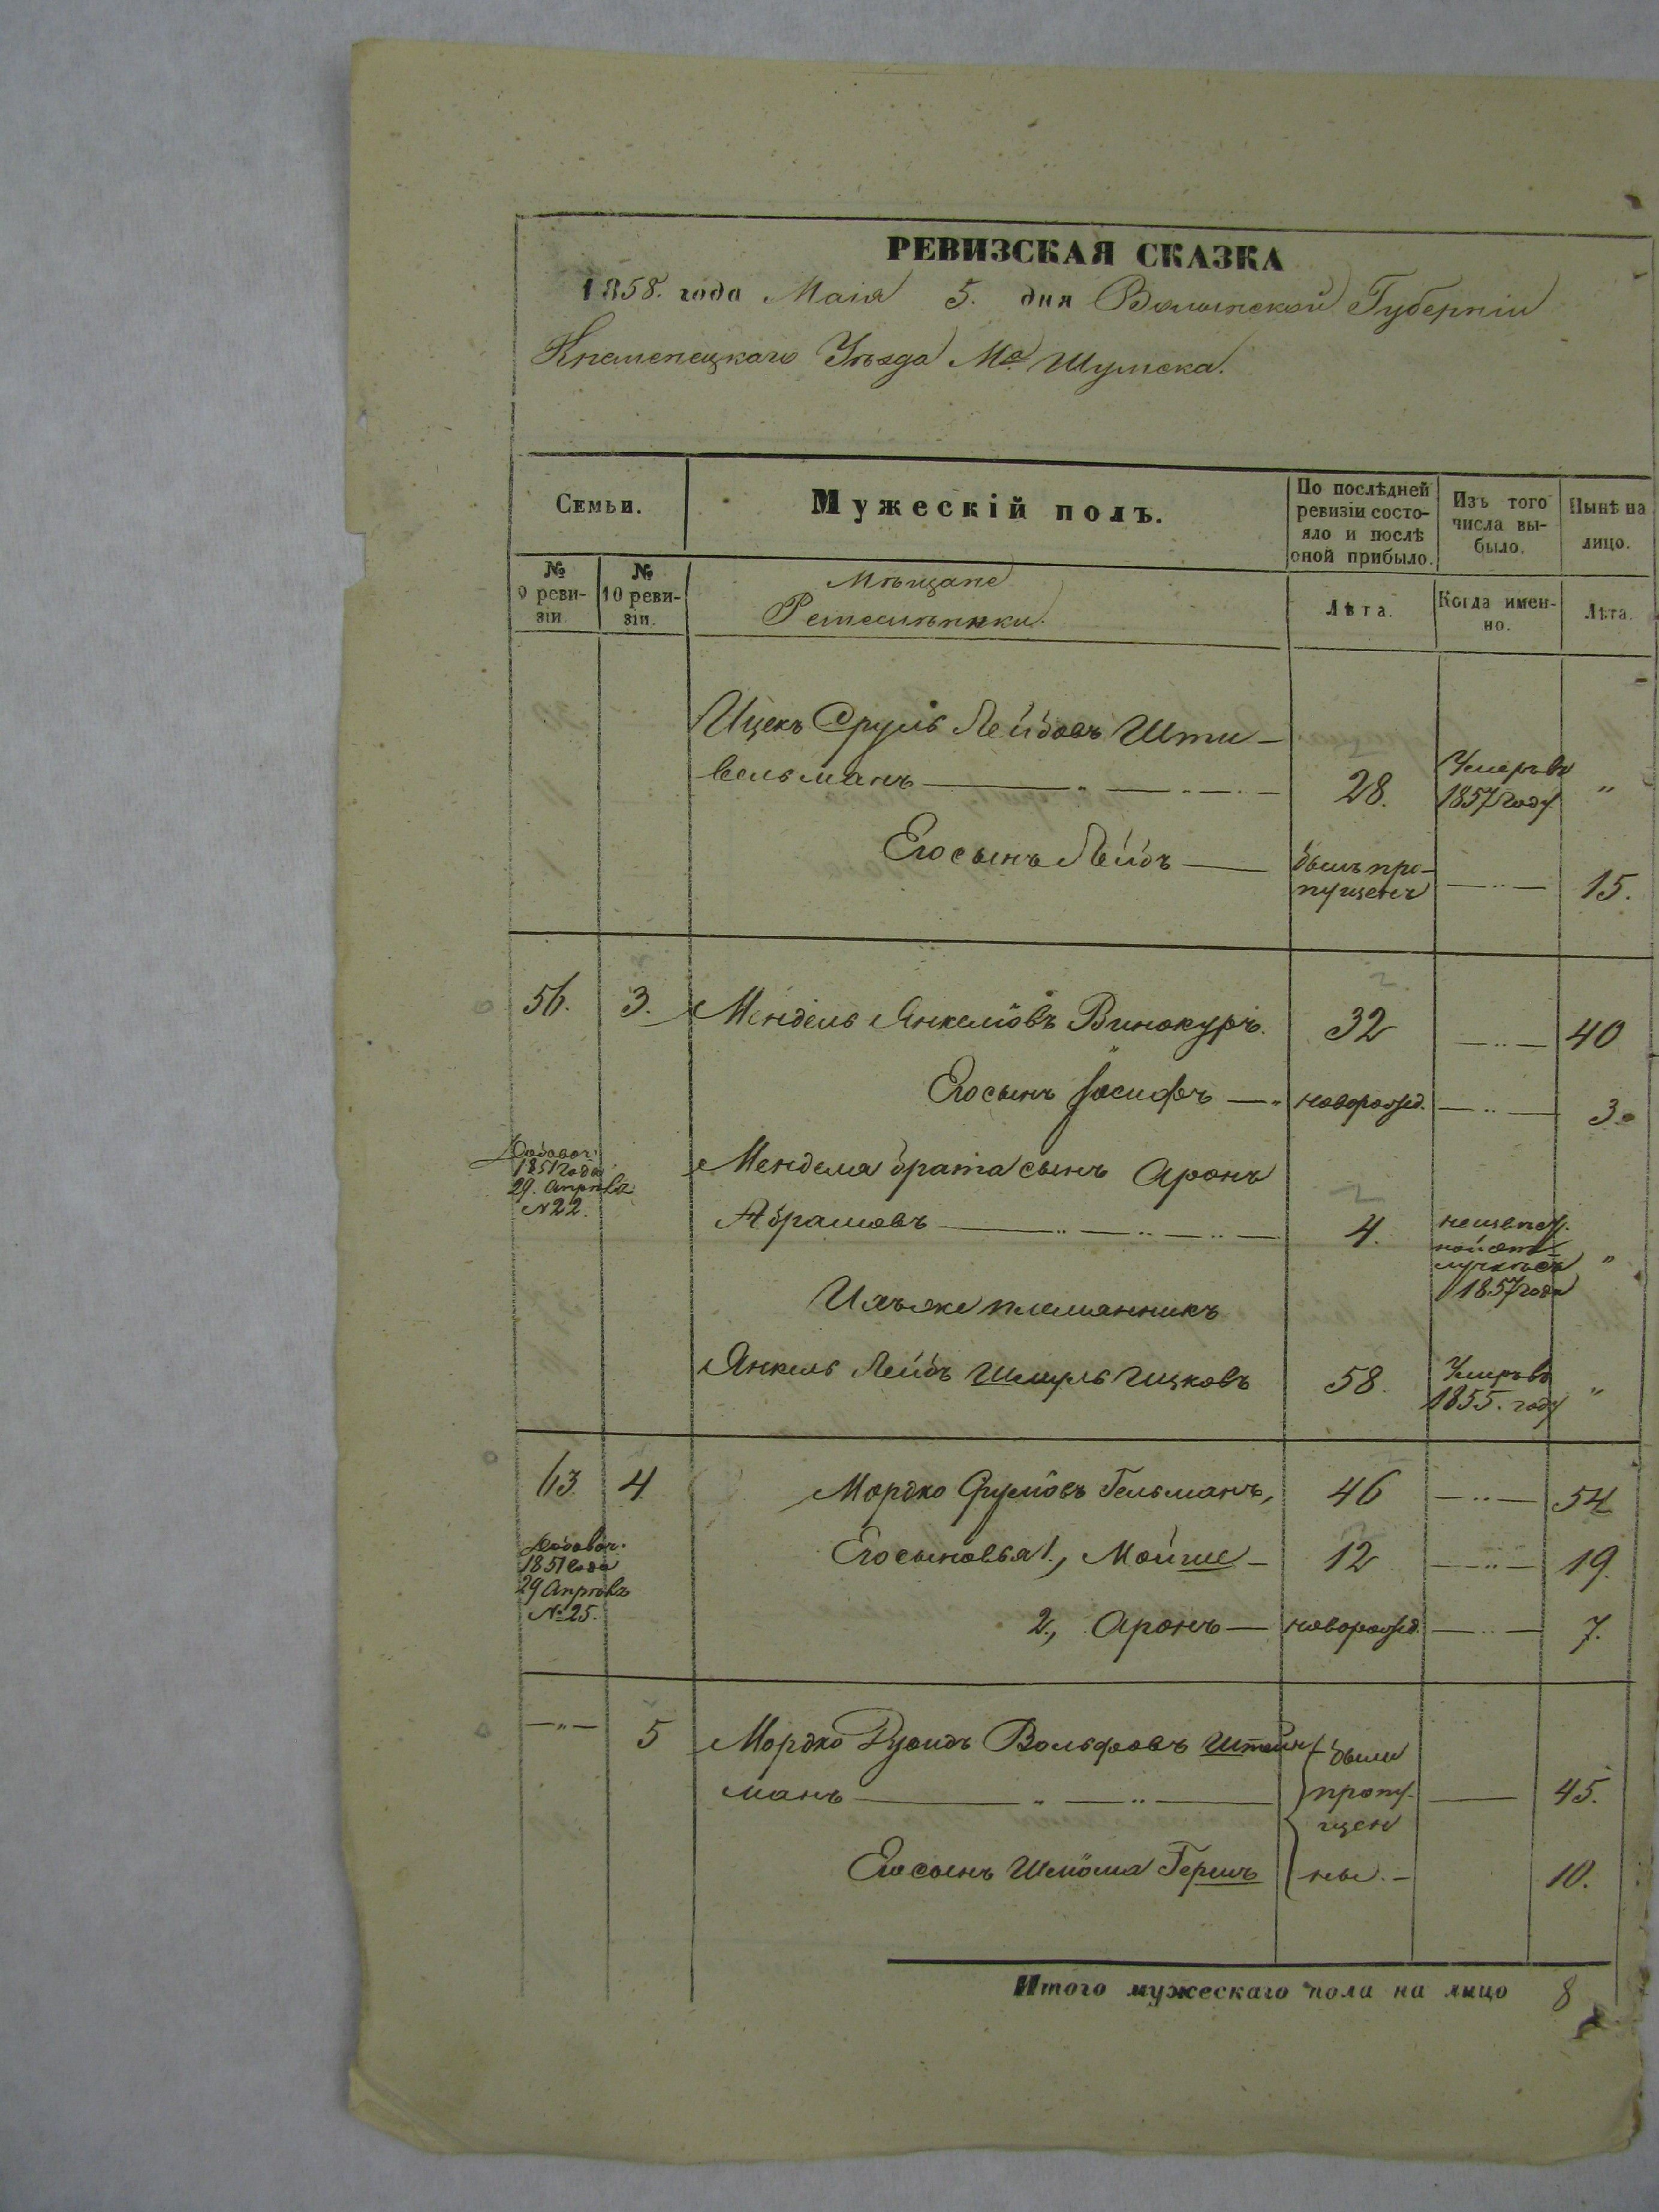 РЕВИЗСКАЯ СКАЗКА
1858. года Маія 5. дня Волынской Губерніи
Кременецкаго Уѣзда М.а Шумска.
Семьи.
Мужескій полъ.
По послѣдней ревизіи состо-
яло и послѣ
оной прибыло.
Изъ того
числа вы-
было.
Нынѣ на
лицо.
№
9 реви-
зіи.
№
10 реви-
зіи.
Мѣщане
Ремесленники.
Лѣта.
Когда имен-
но.
Лѣта.
Ицекъ Сруль Лейбовъ Шти-
вельманъ — " — " — 28. Умеръ въ 1857 году "
Его сынъ Лейбъ — былъ про-
пущенъ — " — 15.
56. 3. Мендель Янкелiовъ Винокуръ. 32 — " — 40
Его сынъ Іосифъ — " новорожд. — " — 3.
Добавоч.
1851 года
29. Апрѣля
№ 22.
Менделя брата сынъ Аронъ
Абрамовъ — " — " — " — 4.
отлучкѣ съ
1857 года "
Ихъ же племянникъ
Янкель Лейбъ Шмуль Ицковъ 58. Умеръ въ
1855. году "
63. 4. Мордко Сруліовъ Гельманъ, 46 — " — 54
Добавоч.
1851 года
29 Апрѣля
№ 25.
Его сыновья 1., Мойше — 12 — " — 19.
2., Аронъ — новорожд. — " — 7.
— " — 5 Мордко Вольфовъ Штейн-
манъ — " — " — были пропу-
щен
ны. — 45.
Его сынъ Шліома Гершъ 10.
Итого мужескаго пола на лицо 8